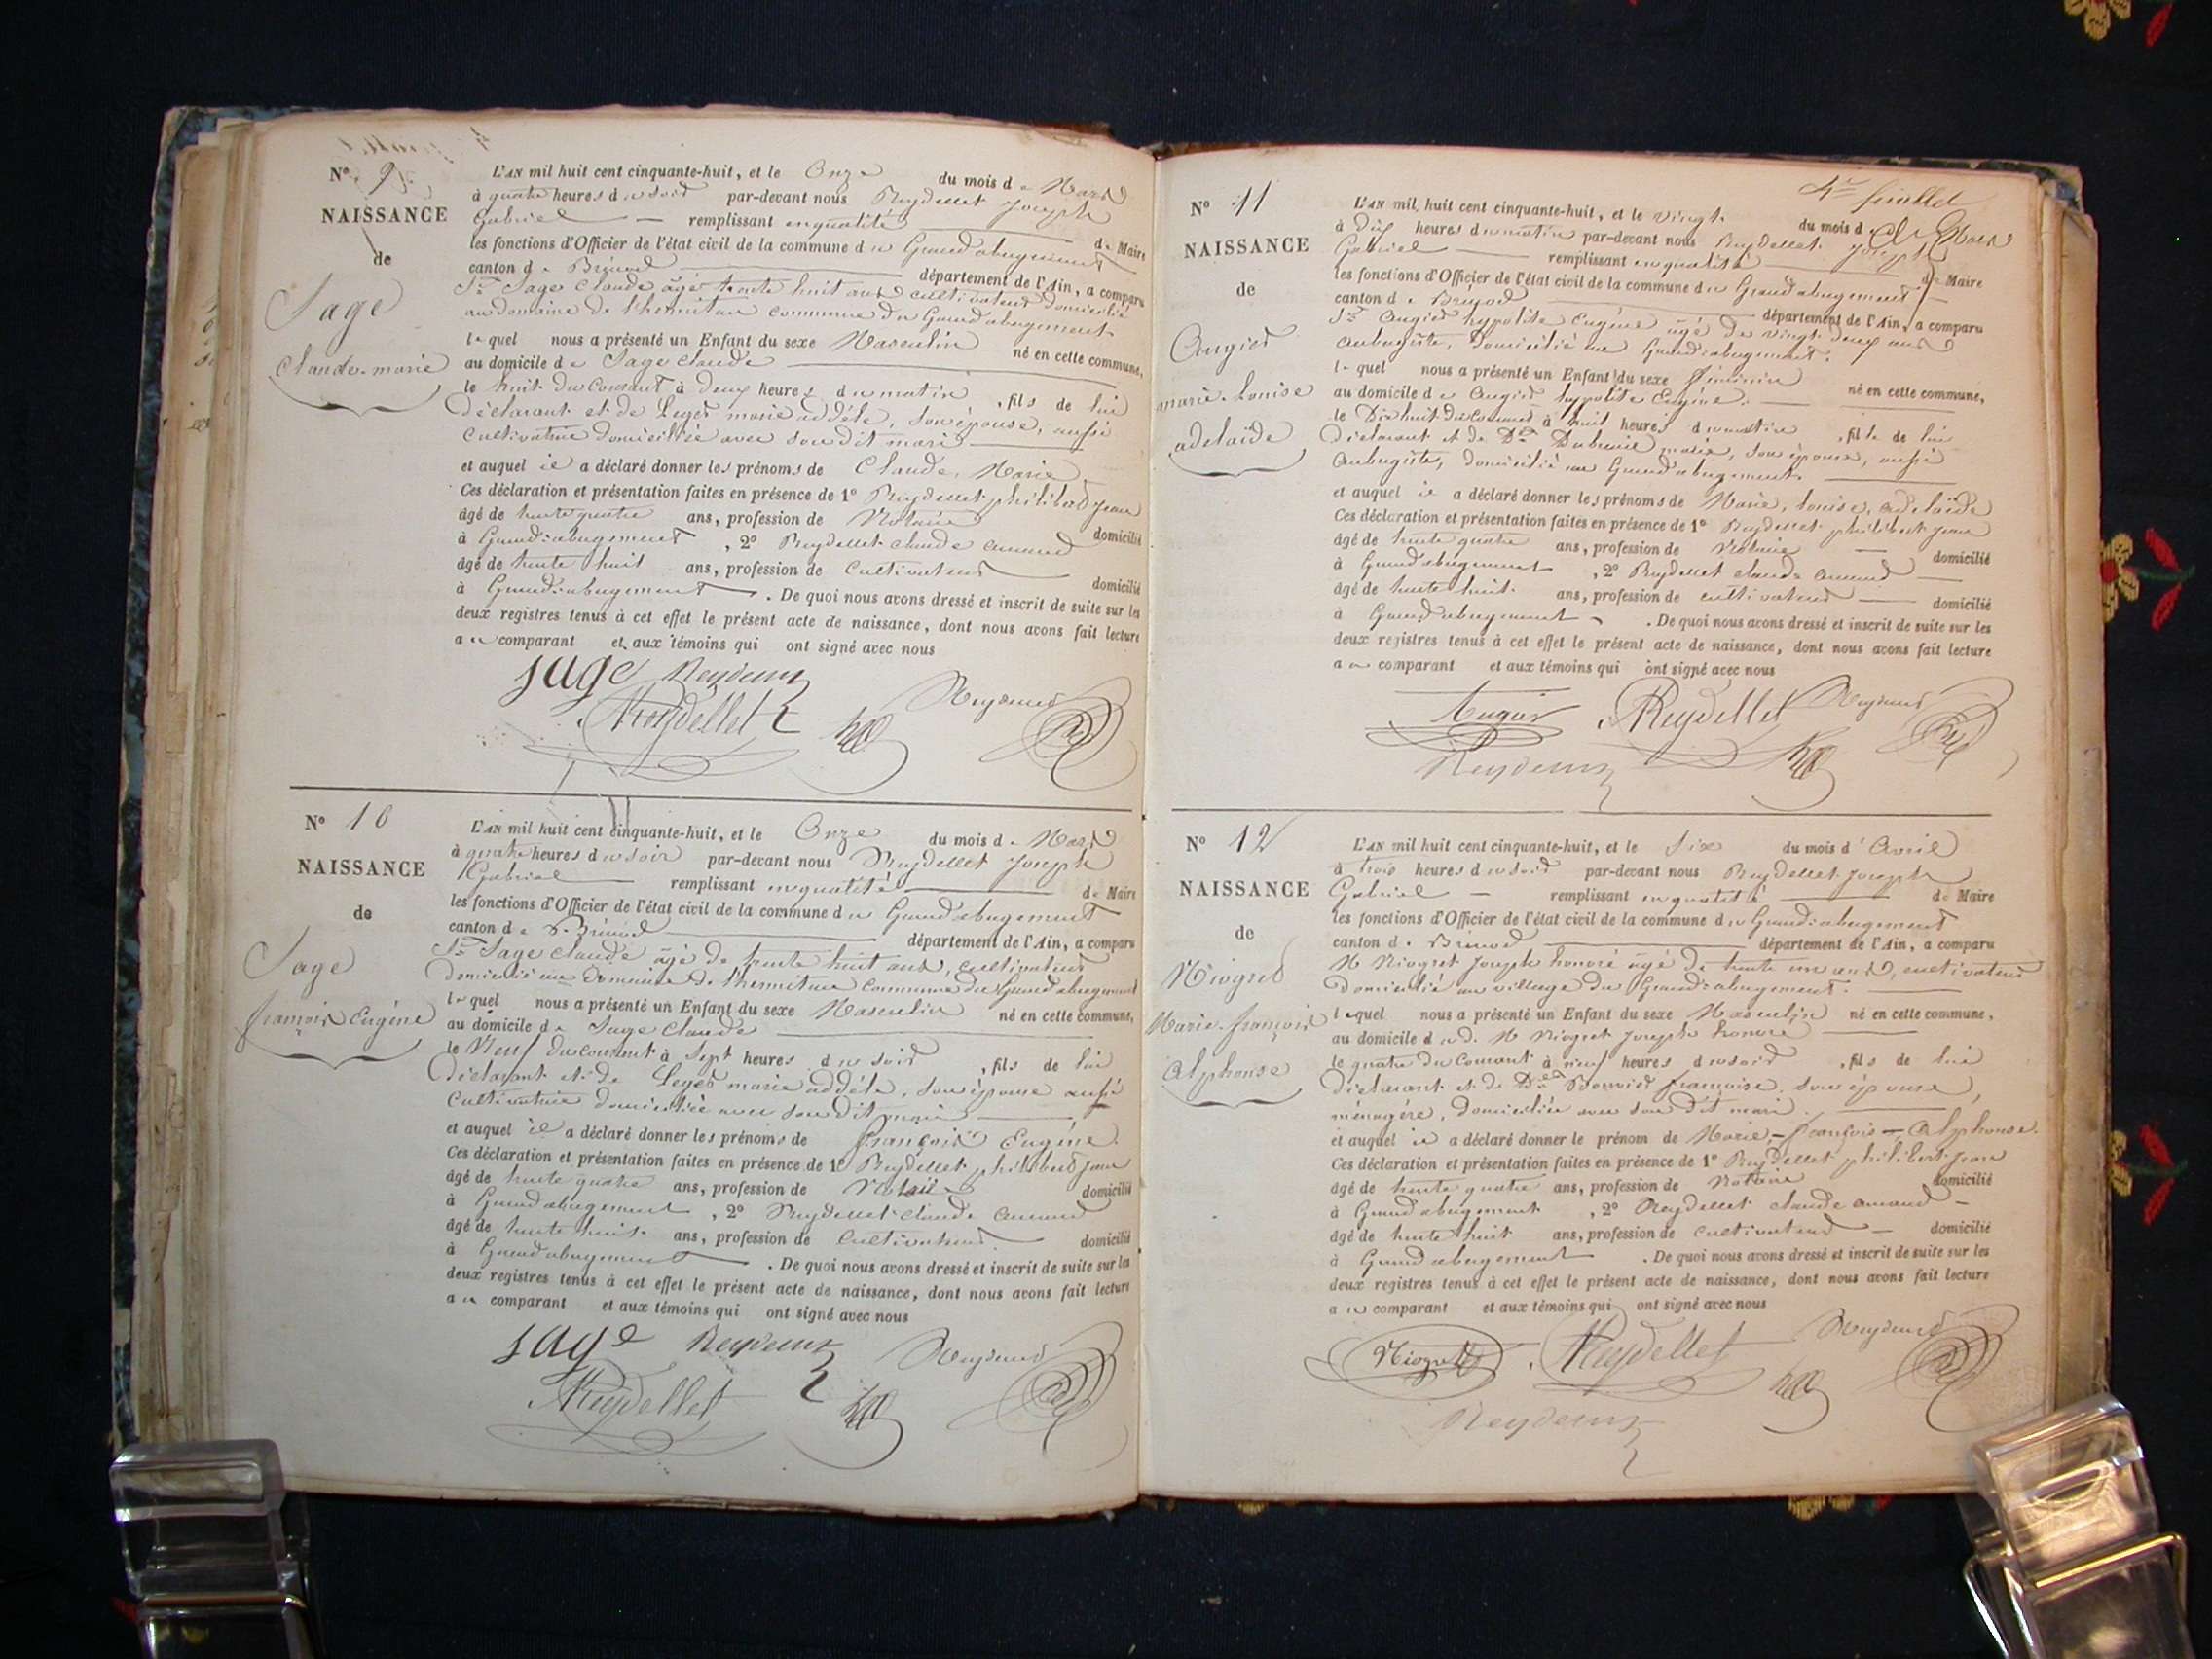 N° 9
NAISSANCE
de
Sage
Claude-marie
L'AN mil huit cent cinquante-huit, et le Onze du mois de Mars
à quatre heures du soir par-devant nous Reydellet Joseph
Gabriel remplissant en qualité de Maire
les fonctions d'Officier de l'état civil de la commune du Grand abergement
canton de Brénod département de l'Ain, a comparu
Sr Sage Claude âgé trente huit ans cultivateur domicilié
au domaine de l'hermitan commune du Grand abergement
lequel nous a présenté un Enfant du sexe Masculin né en cette commune,
au domicile de Sage Claude
le huit du Courant à deux heures du matin , fils de lui
déclarant et de Leger marie addéle, son épouse, aussi
Cultivatrice domiciliée avec son dit mari
et auquel il a déclaré donner les prénoms de Claude, Marie
Ces déclaration et présentation faites en présence de 1° Reydellet philibert jean
âgé de trente quatre ans, profession de Notaire domicilié
à Grand-abergement , 2° Reydellet claude amand
âgé de trente huit ans, profession de Cultivateur domicilié
à Grand-abergement . De quoi nous avons dressé et inscrit de suite sur les
deux registres tenus à cet effet le présent acte de naissance, dont nous avons fait lecture
au comparant et aux témoins qui ont signé avec nous
sage
Reydellet
N° 10
NAISSANCE
de
Sage
françois Eugène
L'AN mil huit cent cinquante-huit, et le Onze du mois de Mars
à quatre heures du soir par-devant nous Reydellet Joseph
Gabriel remplissant en qualité de Maire
les fonctions d'Officier de l'état civil de la commune du Grand abergement
canton de Brénod département de l'Ain, a comparu
Sr Sage Claude âgé de trente huit ans, cultivateur
domicilié au domaine de l'hermitan commune du Grand abergement
lequel nous a présenté un Enfant du sexe Masculin né en cette commune,
au domicile de Sage Claude
le Neuf du courant à Sept heures du soir , fils de lui
déclarant et de Leger marie addéle, son épouse aussi
Cultivatrice domiciliée avec son dit mari
et auquel il a déclaré donner les prénoms de François Eugène.
Ces déclaration et présentation faites en présence de 1° Reydellet philibert jean
âgé de trente quatre ans, profession de Notaire domicilié
à Grand abergement , 2° Reydellet claude amand
âgé de trente huit ans, profession de Cultivateur domicilié
à Grand abergement . De quoi nous avons dressé et inscrit de suite sur les
deux registres tenus à cet effet le présent acte de naissance, dont nous avons fait lecture
au comparant et aux témoins qui ont signé avec nous
sage
Reydellet
4e feuillet
N° 11
NAISSANCE
de
Augier
marie-Louise
adelaïde
L'AN mil huit cent cinquante-huit, et le vingt du mois de Mars
à dix heures du matin par-devant nous Reydellet Joseph
Gabriel remplissant en qualité de Maire
les fonctions d'Officier de l'état civil de la commune du Grand abergement
canton de Brenod département de l'Ain, a comparu
Sr Augier hypolite Eugène âgé de vingt deux ans
Aubergiste, domicilié au Grand-abergement.
lequel nous a présenté un Enfant du sexe féminin né en cette commune,
au domicile de Augier hypolite Eugène.
le Dix huit du courant à huit heures du matin , fille de lui
déclarant et de De Dubreuil marie, son épouse, aussi
Aubergiste, domicilié au Grand abergement
et auquel il a déclaré donner les prénoms de Marie, Louise, adelaïde
Ces déclaration et présentation faites en présence de 1° Reydellet philibert jean
âgé de trente quatre ans, profession de Notaire domicilié
à Grand abergement , 2° Reydellet claude amand
âgé de trente huit ans, profession de cultivateur domicilié
à Grand abergement . De quoi nous avons dressé et inscrit de suite sur les
deux registres tenus à cet effet le présent acte de naissance, dont nous avons fait lecture
au comparant et aux témoins qui ont signé avec nous
Augier Reydellet
N° 12
NAISSANCE
de
Niogret
Marie-françois
Alphonse
L'AN mil huit cent cinquante-huit, et le Six du mois d'Avril
à trois heures du soir par-devant nous Reydellet Joseph
Gabriel remplissant en qualité de Maire
les fonctions d'Officier de l'état civil de la commune du Grand-abergement
canton de Brénod département de l'Ain, a comparu
M Niogret Joseph honoré âgé de trente un ans, cultivateur
domicilié au village du Grand-abergement.
lequel nous a présenté un Enfant du sexe Masculin né en cette commune,
au domicile dud. M Niogret Joseph honoré
le quatre du Courant à neuf heures du soir , fils de lui
déclarant et de De françoise son épouse,
ménagère, domiciliée avec son dit mari.
et auquel il a déclaré donner le prénom de Marie-françois-Alphonse.
Ces déclaration et présentation faites en présence de 1° Reydellet philibert jean
âgé de trente quatre ans, profession de Notaire domicilié
à Grand abergement , 2° Reydellet claude amand
âgé de trente huit ans, profession de cultivateur domicilié
à Grand abergement . De quoi nous avons dressé et inscrit de suite sur les
deux registres tenus à cet effet le présent acte de naissance, dont nous avons fait lecture
au comparant et aux témoins qui ont signé avec nous
Niogret Reydellet